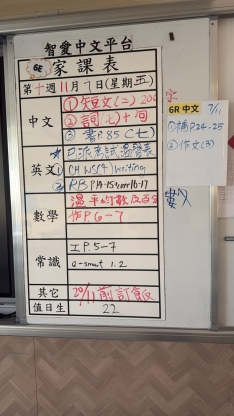 智愛中文平台
6E 家課表
第十週11月7日(星期五)
中文
①短文(二) 200字
②詞七十同
③書P.85(七)
英文
①CH WS(4) writing
②RB P.14-15 + P.16-17
數學
溫平均數及百分
作P.6-7
常識
工P.5-7
e-smart 1.2
其它
20/11前訂飯
值日生
22
6R 中文 7/11
①補P.24-25
②作文(3)